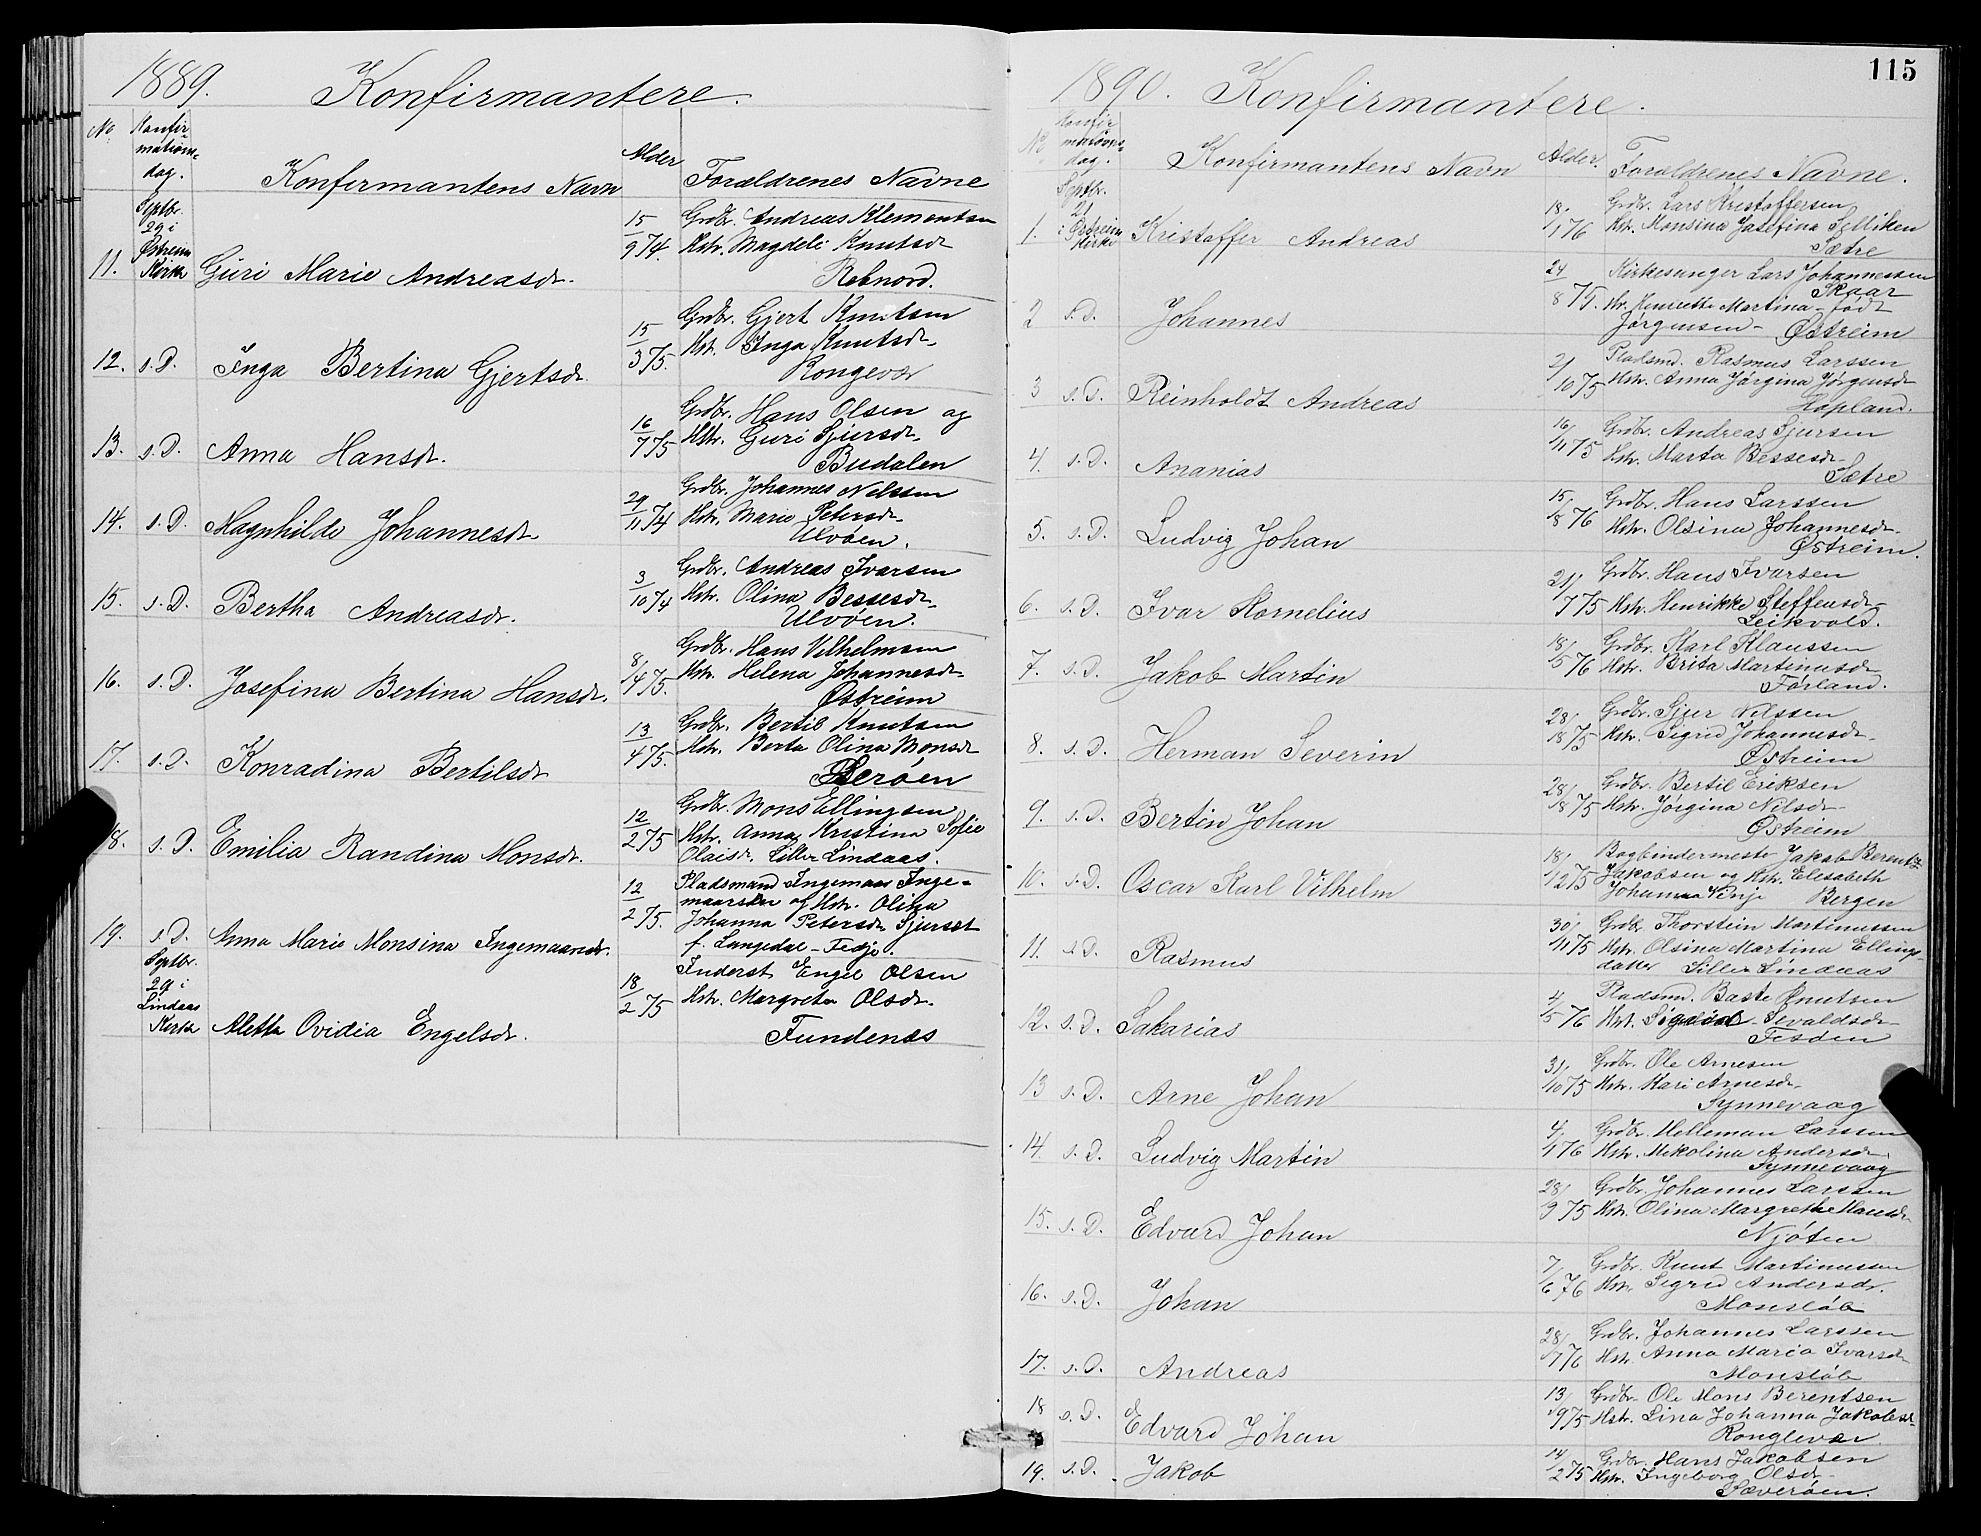 1889. Konfirmantere.
No. Konfir-
mations-
dag.
Konfirmantens Navn
Alder
Forældrenes Navne
Septbr.
29 i
Østreim
Kirke
11. Guri Marie Andreasdr.
15/9 74
Grdbr. Andreas Klementsen
Hstr. Magdeli Knutsdr
Rebnord.
12. s.D. Inga Bertina Gjertsdr.
15/3 75.
Grdbr. Gjert Knutsen
Hstr. Inga Knutsdr.
Rongevær
13. s.D. Anna Hansdr.
16/7 75
Grdbr. Hans Olsen og
Hstr. Guri Sjursdr.
Budalen
14. s.D. Magnhilde Johannesdr
29/11 74
Grdbr. Johannes Nelssen
Hstr. Marie Petersdr.
Ulvøen.
15. s.D. Bertha Andreasdr.
3/10 74
Grdbr. Andreas Ivarsen
Hstr. Olina Bessesdr.
Ulvøen.
16. s.D. Josefina Bertina Hansdr.
8/4 75.
Grdbr. Hans Vilhelmsen
Hstr. Helena Johannesdr.
Østreim
17. s.D. Konradina Bertilsdr
13/4 75.
Grdbr. Bertil Knutsen
Hstr. Berta Olina Monsdr
Berøen
18. s.D. Emilia Randina Monsdr.
12/2 75
Grdbr. Mons Ellingsen
Hstr. Anna Kristina Sofie
Olaisdr. Lille Lindaas.
19. s.D. Anna Marie Monsina Ingemaarsdr.
12/2 75.
Pladsmand Ingemaar Inge-
maarsen og Hstr. Olina
Johanna Petersdr Sjurset
f. Langedal - Fedje.
Septbr.
29 i
Lindaas
Kirke
Aletta Ovidia Engelsdr.
18/2 75
Inderst Engel Olsen
Hstr. Margreta Olsdr.
Fundenes
115
1890. Konfirmantere.
No. Konfir
mations-
dag.
Konfirmantens Navn
Alder.
Forældrenes Navne.
Septbr.
21
i Østreim
Kirke
1. Kristoffer Andreas
18/1 76
Grdbr. Lars Kristoffersen
Hstr. Monsina Josefina Selliken
Sætre
2 s.D. Johannes
24/8 75.
Kirkesanger Lars Johannessen
Skaar
Hstr. Henriette Martina født
Jørgensen - Østreim
3 s.D. Reinholdt Andreas
2/10 75
Pladsmd. Rasmus Larssen
Hstr. Anna Jørgina Jørgensdr
Hopland.
4. s.D. Ananias
16/11 75
Grdbr. Andreas Sjursen
Hstr. Marta Bessesdr
Sætre
5. s.D. Ludvig Johan
15/8 76
Grdbr. Hans Larssen
Hstr. Olsina Johannesdr
Østreim.
6. s.D. Ivar Kornelius
21/7 75
Grdbr. Hans Ivarsen
Hstr. Henrikke Steffensdr.
Leikvold.
7. s.D. Jakob Martin
18/5 76
Grdbr. Karl Klaussen
Hstr. Brita Martinusdr
Førland.
8. s.D. Herman Severin
28/8 75
Grdbr. Sjur Nilssen
Hstr. Sigrid Johannesdr.
Østreim
9. s.D. Bertin Johan
28/8 75
Grdbr. Bertil Eriksen
Hstr. Jørgina Nilsdr
Østreim
10. s.D. Oscar Karl Vilhelm
18/12 75
Bogbindermester Jakob Berent
Jakobsen og Hstr. Elisabeth
Johanna Vinje Bergen
11. s.D. Rasmus
30/11 75
Grdbr. Thorstein Martinussen
Hstr. Olsina Martina Ellings-
datter Lille Lindaas
12. s.D. Sakarias
4/5 76
Pladsmd. Baste Knutsen
Hst. Sevaldsdr
13 s.D. Arne Johan
31/10 75
Grdbr. Ole Arnesen
Hstr. Kari Arnesdr.
Synnevaag
14. s.D. Ludvig Martin
4/1 76
Grdbr. Helleman Larssen
Hstr. Nikolina Andersdr.
Synnevaag
15. s.D. Edvard Johan
28/9 75
Grdbr. Johannes Larssen
Hstr. Olina Margrethe Hansdr
Njøten
16. s.D. Johan
7/6 76
Grdbr. Knut Martinussen
Hstr. Sigrid Andersdr.
Monsløb
17. s.D. Andreas
28/7 76
Grdbr. Johannes Larssen
Hstr. Anna Maria Ivarsdr
Monsløb
18 s.D. Edvard Johan
13/9 75
Grdbr. Ole Mons Berentsen
Hstr. Lina Johanna Jakobsdr
Ronglevær
19. s.D. Jakob
14/2 75
Grdbr. Hans Jakobsen
Hstr. Ingeborg Olsdr
Sæverøen.